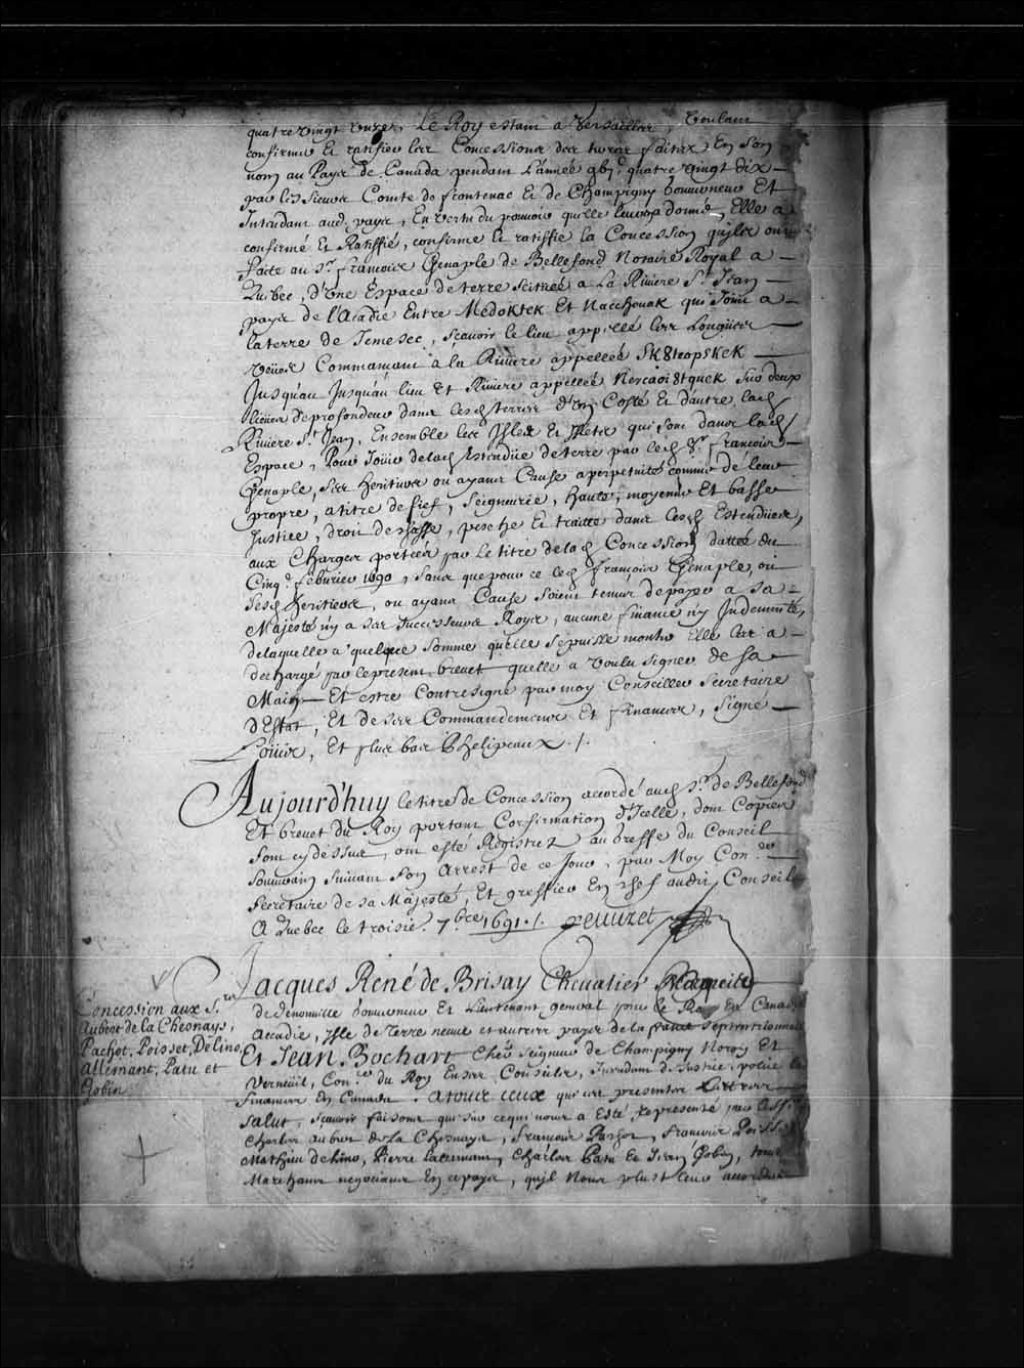 quatre vingt unze, Le Roy estant a Versailles, Voulant
confirmer Et ratifier les Concessions des terres faites En Son
nom au Pays de Canada pendant L'année gbj.c quatre vingt dix
par les Sieurs Comte de frontenac Et de Champigny Gouverneur Et
Intendant aud. pays, En Vertu du pouvoir qu'elle leur a donné, Elle a
confirmé Et Ratiffié, confirme Et ratiffie la Concession qu'ils ont
faite au Sr. françois Genaple de Bellefond Notaire Royal a
Québec, d'Une Espace de terre scituée a La Riviere St. Jean
pays de l'Acadie Entre Medoktek Et Nacchouak qui Joint a
la terre de Jemesec, Scavoir le lieu appellé les Longües
veües Commançant a la Riviere appellée Sk8teopskek
Jusqu'au Jusqu'au lieu Et Riviere appellée Nercaoi8tquek Sur deux
lieües de profondeur dans lesd. terres d'Un Costé Et d'autre lad.
Riviere St. Jean, Ensemble les Isles Et Islets qui sont dans lad.
Espace, Pour Joüir de lad. Estendüe de terre par led. Sr. françois
Genaple, Ses heritiers ou ayans Cause a perpetuité comme de leur
propre, a titre de fief, Seigneurie, haute, moyenne Et basse
Justice, droit de chasse, pesche Et traitte dans lesd. Estendües,
aux Charges portées par Le titre de lad. Concession dattée du
Cinqe. febvrier 1690, Sans que pour ce led. françois Genaple, ou
Sesd. heritiers, ou ayans Cause soient tenus de payer a Sa
Majesté ny a ses Successeurs Roys, aucune finance ny Indemnité,
de laquelle a quelque Somme qu'elle se puisse monter Elle les a
dechargé par le present brevet quelle a Voulu Signer de sa
Main Et estre Contresigné par moy Conseiller Secretaire
d'Estat, Et de ses Commandemens Et finances, Signé
Loüis, Et plus bas Phelipeaux ./.
Aujourd'huy le titre de Concession accordé aud. Sr. de Bellefond
Et brevet du Roy portant Confirmation d'Icelle, dont Copies
Sont cy dessus, ont esté Registrez au Greffe du Conseil
Souverain Suivant Son Arrest de ce Jour, par Moy Con.er
Secretaire de sa Majesté, Et greffier En chef audit Conseil
A Quebec le troisie. 7.bre 1691 ./. Peuvret
Jacques René de Brisay Chevalier Marquis
de Denonville Gouverneur Et Lieutenant general pour le Roy En Canada
Accadie, Isle de Terre neuve et autres pays de la france septentrionnale
Et Jean Bochart Cher. Seigneur de Champigny Noroy Et
Verneüil, Con.er du Roy En ses Conseils, Intendant de Justice, police Et
finances En Canada. A tous ceux qui ces presentes Lettres
Salut, Scavoir faisons que sur ce qui nous a Esté representé par les Srs.
Charles aubert de La Chesnaye, françois Pachot, francois Poisset
Mathieu de Lino, Pierre Lallemant, Charles Patu Et Jean Gobin, tous
Marchans negocians En ce pays, qu'il Nous plust leur accorder
Concession aux Srs.
Aubert de la Chesnays,
Pachot, Poisset, Delino,
Allemant, Patu et
Gobin